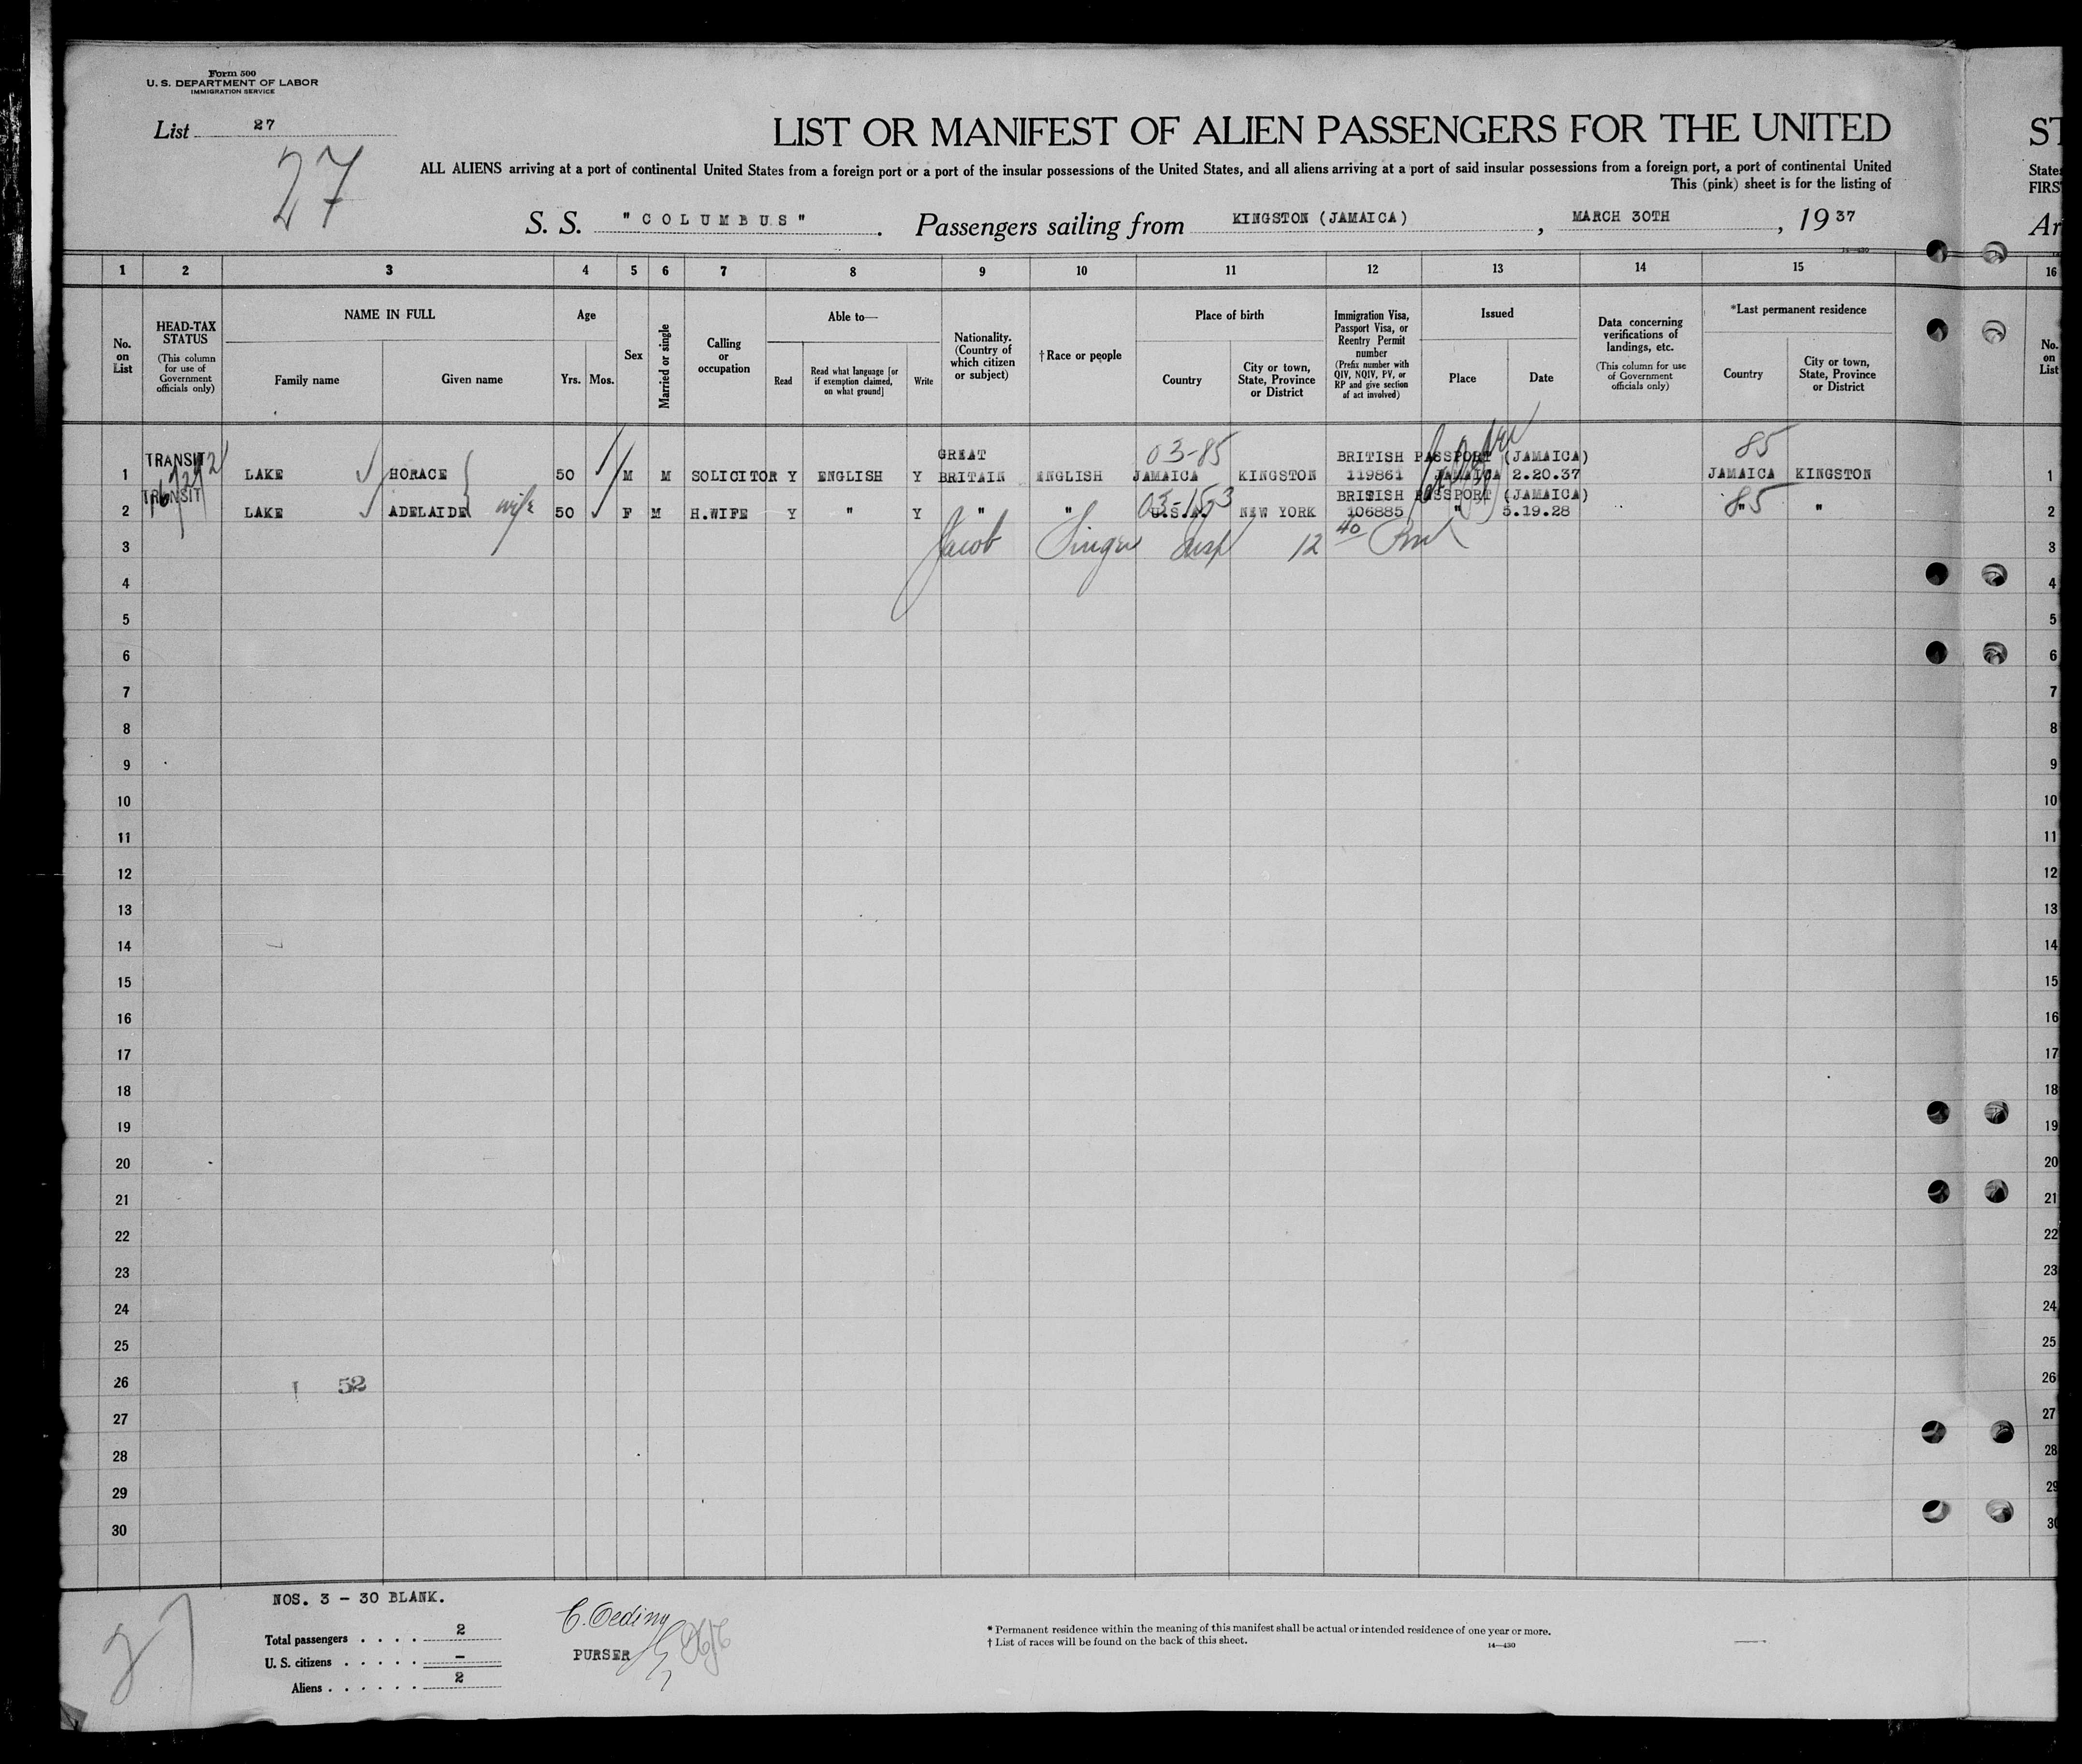 Form 500
U. S. DEPARTMENT OF LABOR
IMMIGRATION SERVICE
List 27
27
LIST OR MANIFEST OF ALIEN PASSENGERS FOR THE UNITED
ST
ALL ALIENS arriving at a port of continental United States from a foreign port or a port of the insular possessions of the United States, and all aliens arriving at a port of said insular possessions from a foreign port, a port of continental United
States
This (pink) sheet is for the listing of
FIRS
S. S. "COLUMBUS". Passengers sailing from KINGSTON (JAMAICA), MARCH 30TH, 1937
Ar
14—430
1 2 3 4 5 6 7 8 9 10 11 12 13 14 15 16
No. on List
HEAD-TAX STATUS
(This column for use of Government officials only)
NAME IN FULL
Family name
Given name
Age
Yrs. Mos.
Sex
Married or single
Calling or occupation
Able to—
Read
Read what language [or if exemption claimed, on what ground]
Write
Nationality. (Country of which citizen or subject)
† Race or people
Place of birth
Country
City or town, State, Province or District
Immigration Visa, Passport Visa, or Reentry Permit number
(Prefix number with QIV, NQIV, PV, or RP and give section of act involved)
Issued
Place
Date
Data concerning verifications of landings, etc.
(This column for use of Government officials only)
*Last permanent residence
Country
City or town, State, Province or District
No. on List
TRANSIT GREAT 03-85 BRITISH PASSPORT (JAMAICA) 85
1 LAKE HORACE 50 M M SOLICITOR Y ENGLISH Y BRITAIN ENGLISH JAMAICA KINGSTON 119861 JAMAICA 2.20.37 JAMAICA KINGSTON 1
TRANSIT 03-153 BRITISH PASSPORT (JAMAICA)
2 LAKE ADELAIDE wife 50 F M H.WIFE Y " Y " " U.S.A. NEW YORK 106885 " 5.19.28 " 85 " 2
3 Jacob Singer Insp 12 40 3
4 4
5 5
6 6
7 7
8 8
9 9
10 10
11 11
12 12
13 13
14 14
15 15
16 16
17 17
18 18
19 19
20 20
21 21
22 22
23 23
24 24
25 25
26 52 26
27 27
28 28
29 29
30 30
NOS. 3 - 30 BLANK.
Total passengers . . . . 2
U. S. citizens . . . . . -
Aliens . . . . . . 2
27
PURSER
* Permanent residence within the meaning of this manifest shall be actual or intended residence of one year or more.
† List of races will be found on the back of this sheet.
14—430